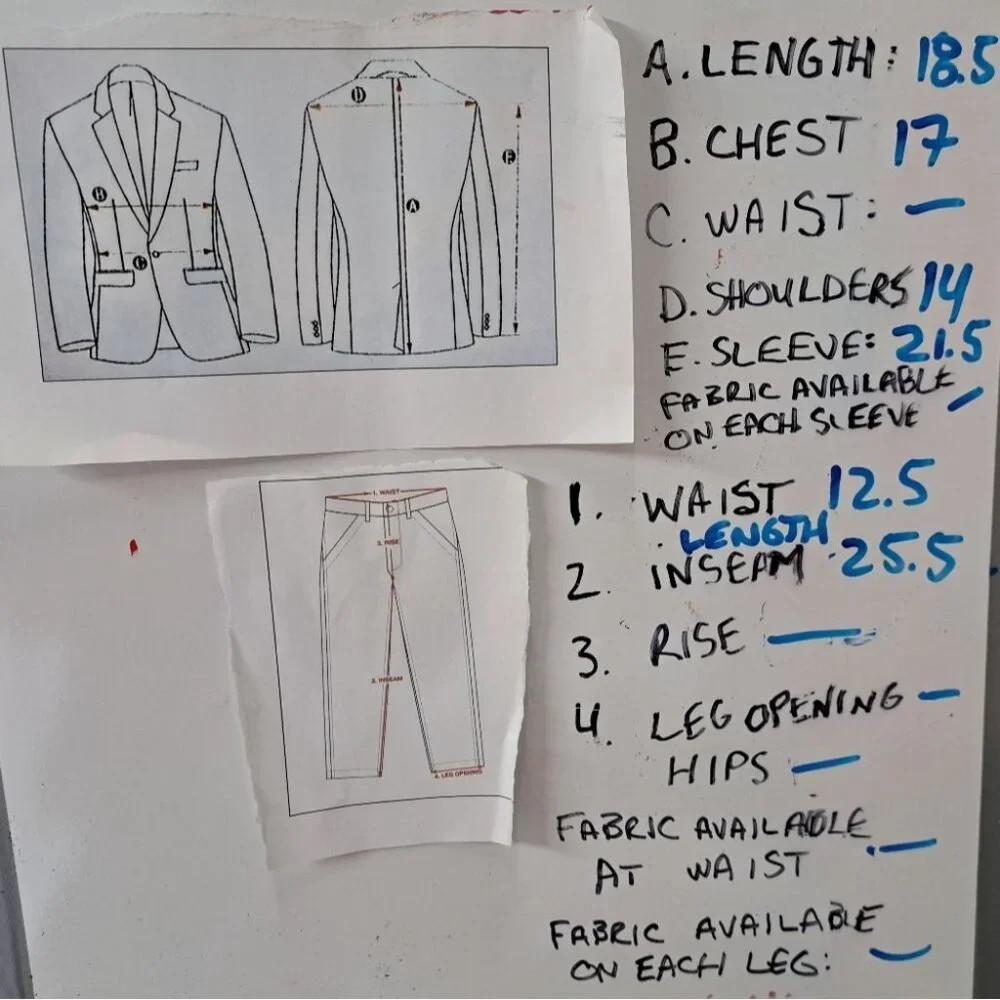 A. LENGTH: 18.5
B. CHEST 17
C. WAIST: —
D. SHOULDERS 14
E. SLEEVE: 21.5
FABRIC AVAILABLE —
ON EACH SLEEVE
1. WAIST 12.5
LENGTH
2. INSEAM 25.5
3. RISE —
4. LEG OPENING —
HIPS —
FABRIC AVAILABLE
AT WAIST —
FABRIC AVAILABLE
ON EACH LEG: —
D
F
B
A
1. WAIST
3. RISE
2. INSEAM
4. LEG OPENING